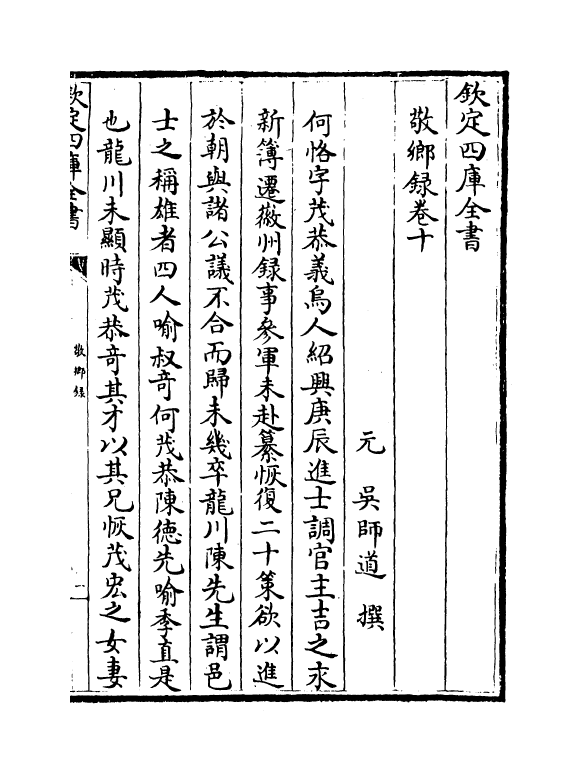 欽定四庫全書
敬鄉録卷十
元　吳師道　撰
何恪字茂恭義烏人紹興庚辰進士調官主吉之永
新簿遷徽州録事參軍未赴纂恢復二十策欲以進
於朝與諸公議不合而歸未幾卒龍川陳先生謂邑
士之稱雄者四人喻叔奇何茂恭陳德先喻季直是
也龍川未顯時茂恭奇其才以其兄恢茂宏之女妻
欽定四庫全書
敬鄉録